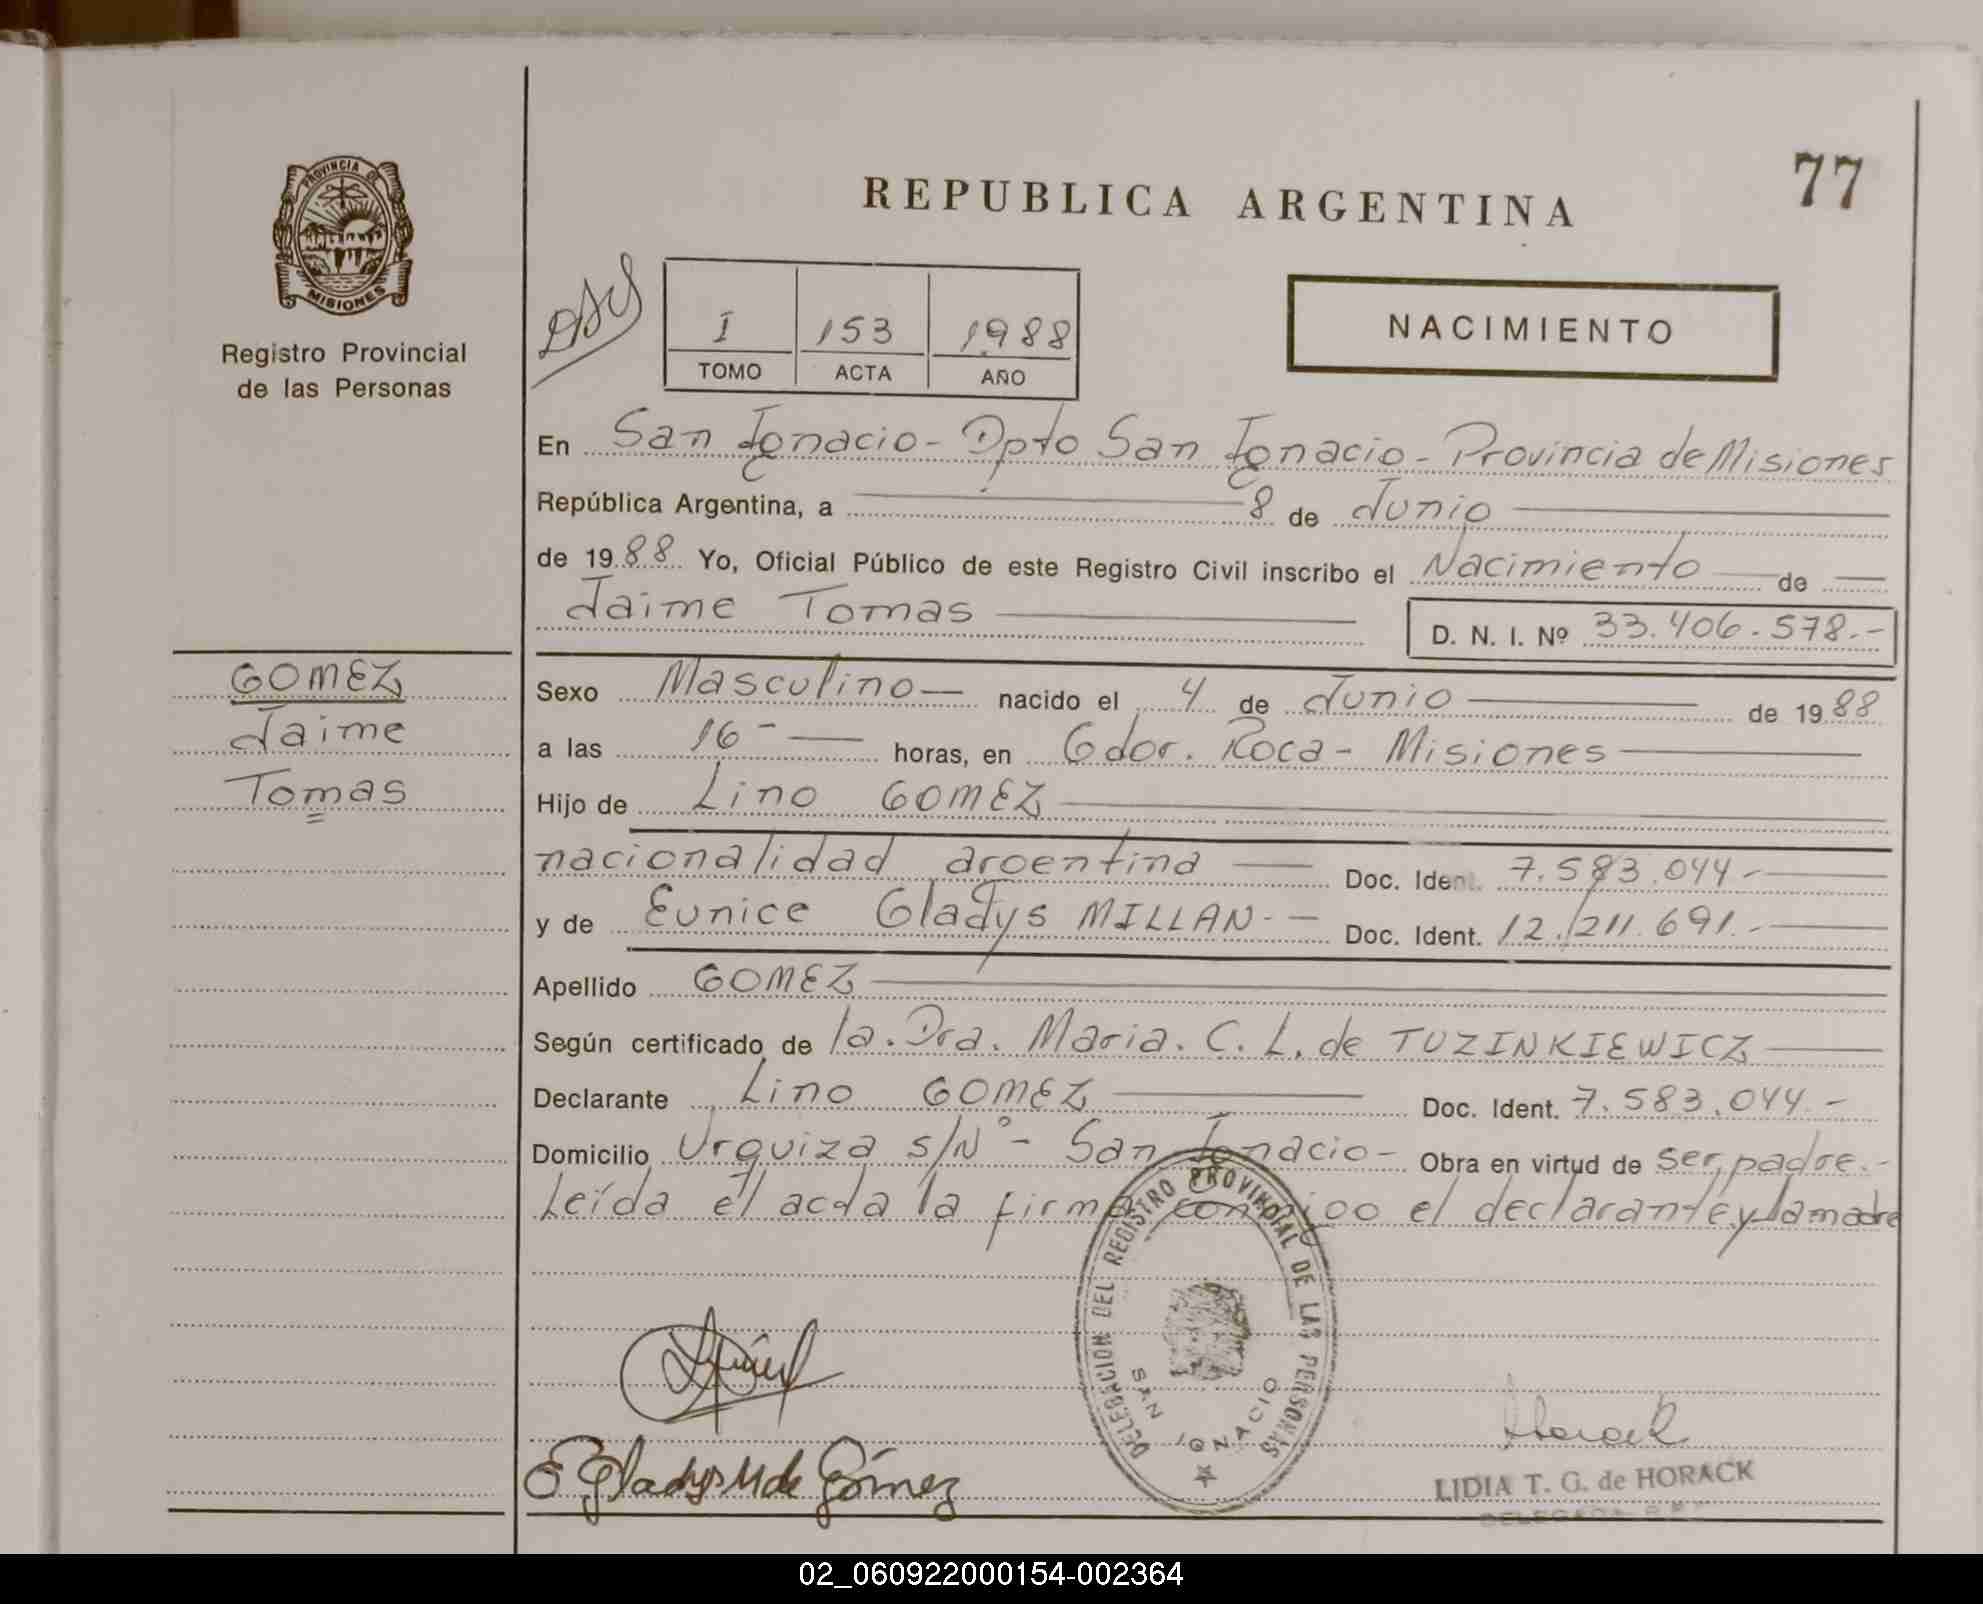 77
REPUBLICA ARGENTINA
PROVINCIA DE
MISIONES
Registro Provincial
de las Personas
I 153 1988
TOMO ACTA AÑO
NACIMIENTO
En San Ignacio - Dpto San Ignacio - Provincia de Misiones
República Argentina, a 8 de Junio
de 1988 Yo, Oficial Público de este Registro Civil inscribo el Nacimiento de
Jaime Tomas D. N. I. Nº 33.406.578.-
GOMEZ
Jaime
Tomas
Sexo Masculino nacido el 4 de Junio de 1988
a las 16 - horas, en Gdor. Roca - Misiones
Hijo de Lino GOMEZ
nacionalidad argentina Doc. Ident. 7.583.044.-
y de Eunice Gladys MILLAN.- Doc. Ident. 12.211.691.-
Apellido GOMEZ
Según certificado de la. Dra. Maria. C. L. de TUZINKIEWICZ
Declarante Lino GOMEZ Doc. Ident. 7.583.044.-
Domicilio Urquiza s/Nº - San Ignacio - Obra en virtud de ser padre.-
Leída el acta la firma conmigo el declarante y la madre
DELEGACION DEL REGISTRO PROVINCIAL DE LAS PERSONAS
SAN IGNACIO
E Gladys M de Gómez
Horack
LIDIA T. G. de HORACK
DELEGADA R.P.P.
02_060922000154-002364